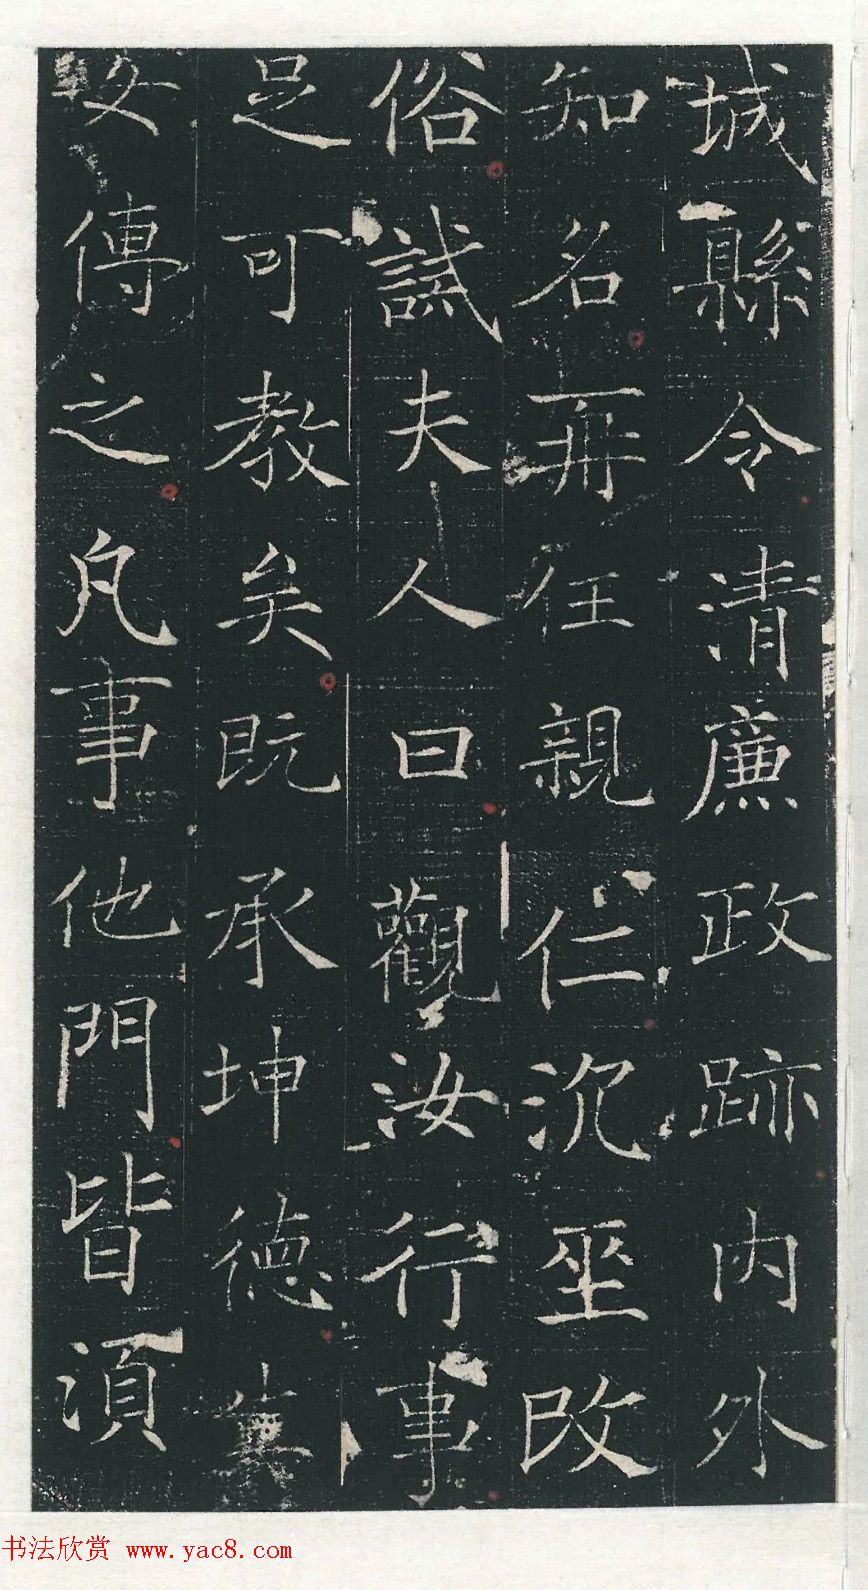 城縣令清廉政跡内外
知名再任親仁沉坐改
俗試夫人曰觀汝行事
足可教矣既承坤德
女傳之凡事他門皆須
书法欣赏 www.yac8.com